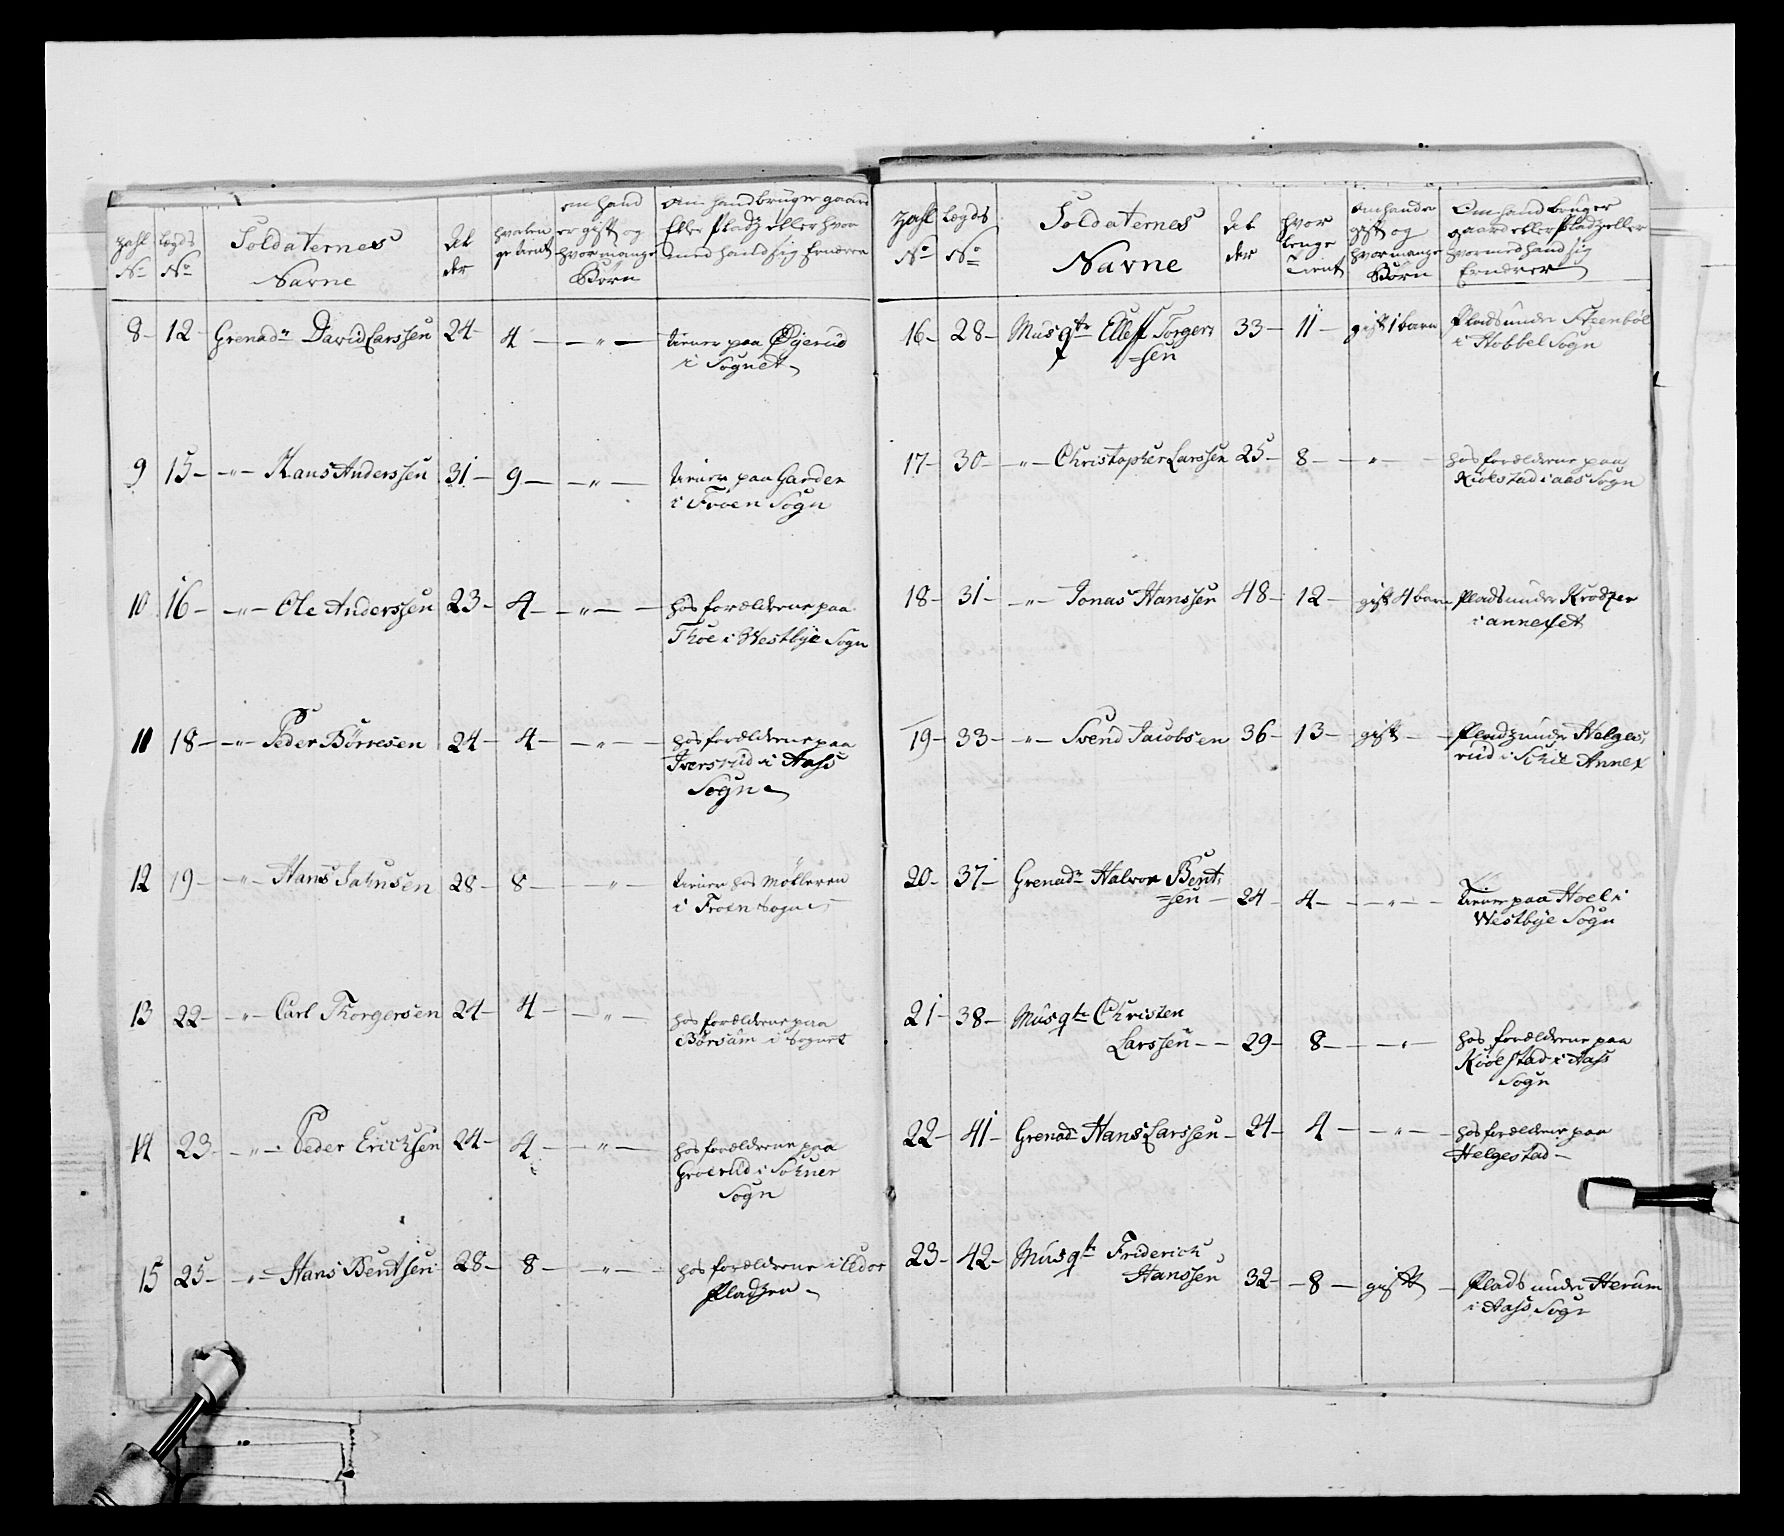 Zahl No
Lægds No
Soldaternes Navne
Al der
hvorlen ge tient
om hand er gift og hvor mange Børn
Om hand bruger gaard Eller Pladz eller hvor med hand sig Ernærer
8- 12- Grenadr David Larssen 24- 4- -"- tiener paa Øgerud
i Sognet
9 15- -"- Hans Anderssen 31- 9- -"- tiener paa Garder
i Froen Sogn
10 16- -"- Ole Anderssen 23- 4- -"- hos forælderne paa
Thoe i Westbye Sogn
11 18- -"- Peder Børresen 24- 4- -"- hos forælderne paa
Iversrud i Aass
Sogn
12 19- -"- Hans Jahnsen 28- 8- -"- tiener hos Møkleren
i Froen Sogn
13 22- -"- Carl Thorgersen 24- 4- -"- hos forælderne paa
Børsum i Sognet
14 23- -"- Peder Erichsen 24- 4- -"- hos forælderne paa
Groerud i Sohner
Sogn
15 25- -"- Hans Bentsen 28- 8- -"- hos forælderne i
Pladzen
Zahl No
Lægds No
Soldaternes Navne
Al der
hvor lenge Tient
Om hand er gift og hvor mange Børn
Om hand bruger gaard eller Pladz eller hvormed hand sig Ernærer
16- 28- Musqtr Elleff Torger=
=sen 33- 11- gift 1 barn Plads under Steenbøl
i Hobbel Sogn
17- 30- -"- Christopher Larssen 25- 8- -"- hos forælderne paa
Kiølstad i aas Sogn
18- 31- -"- Jonas Hanssen 48- 12- gift 4 barn Plads under Krodzer
i annexet
19- 33- -"- Svend Jacobsen 36- 13- gift - Pladz under Helges=
rud i Schie Annex
20- 37- Grenadr Halvor Bent=
=sen - 24- 4- -"- tiener paa Hoel i
Westbye Sogn
21- 38- Musqtr Christen
Larssen - - 29- 8- -"- hos forælderne paa
Kiølstad i Aass
Sogn
22- 41- Grenadr Hans Larssen - 24- 4- -"- hos forælderne paa
Helgestad -
23- 42- Musqtr Friderich
Hanssen 32- 8- gift - Plads under Herum
i Aass Sogn